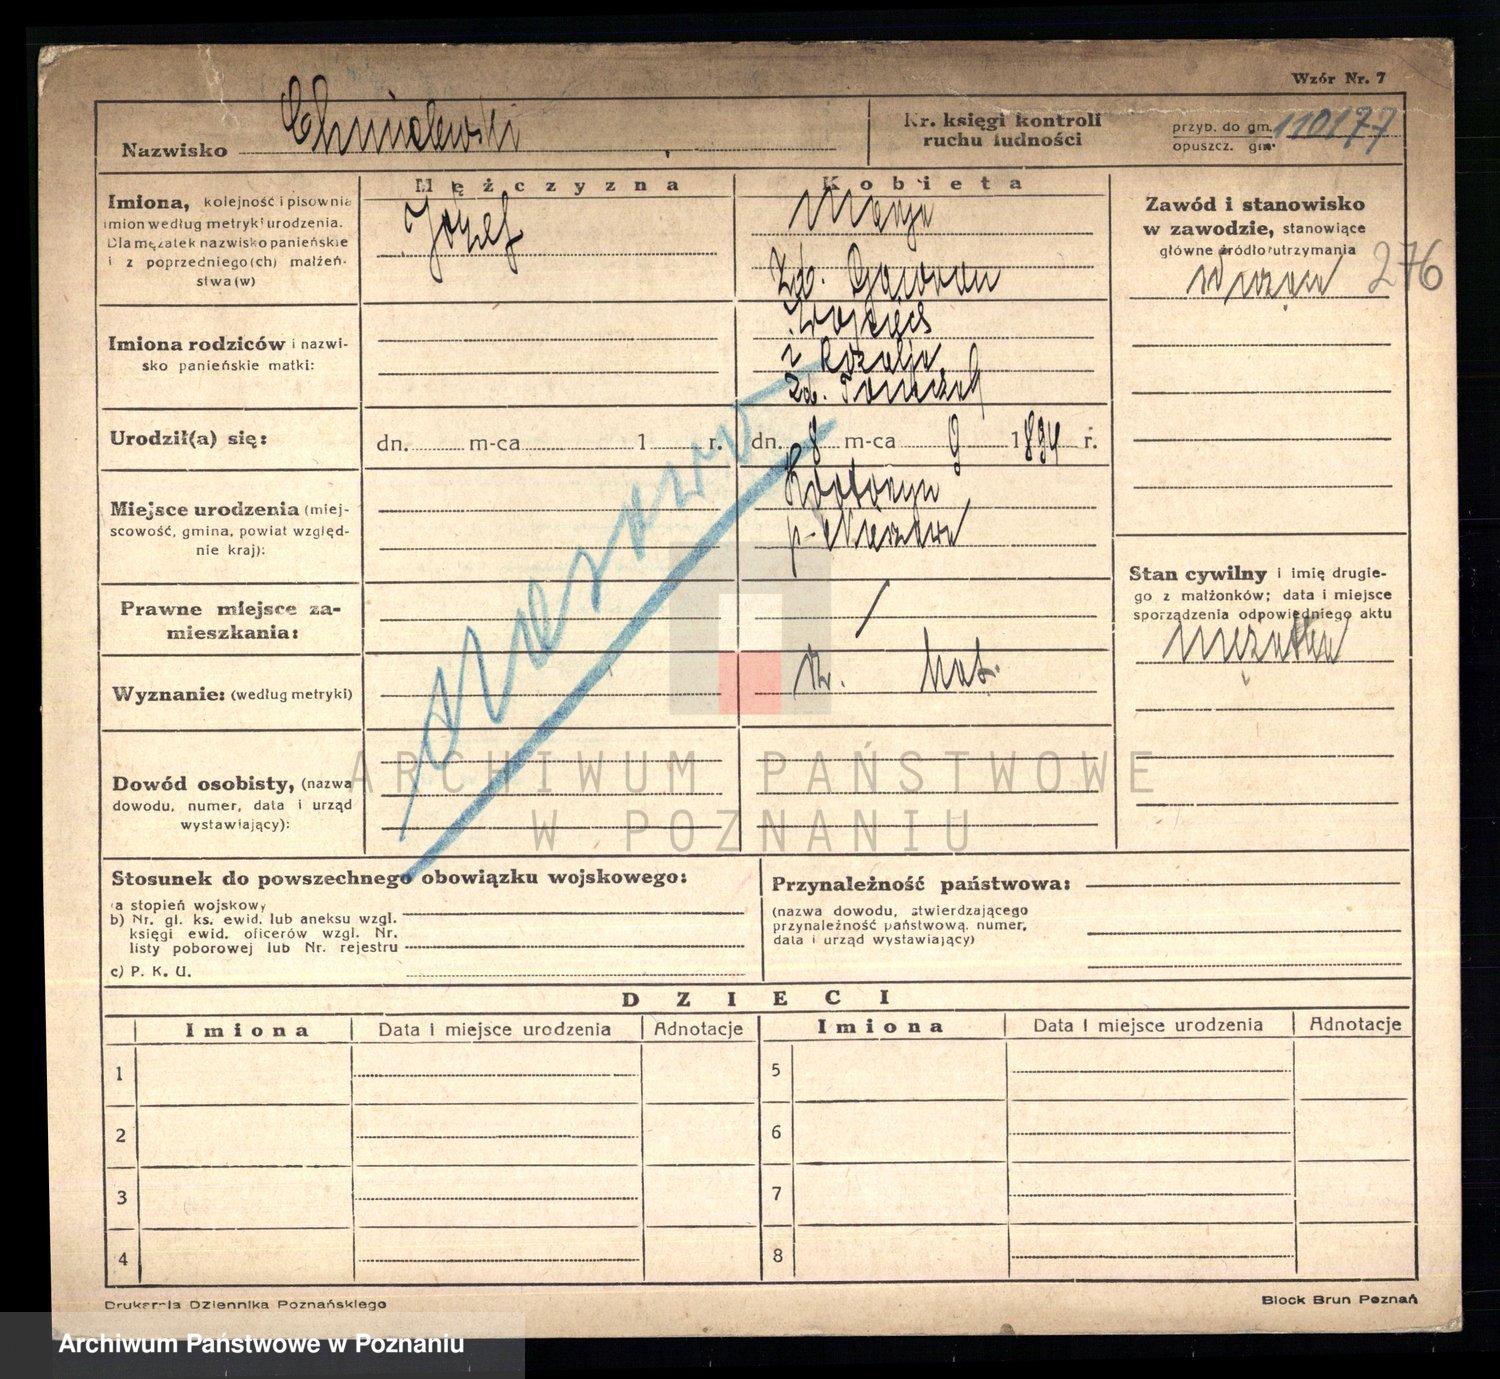 Wzór Nr. 7
Nazwisko Chmielewski
Nr. księgi kontroli ruchu ludności
przyb. do gm. 110177
opuszcz. gm.
Mężczyzna
Kobieta
Imiona, kolejność i pisownia
imion według metryki urodzenia.
Dla mężatek nazwisko panieńskie
i z poprzedniego(ch) małżeń-
stwa(w)
Józef
Marja
Zd.
Zawód i stanowisko
w zawodzie, stanowiące
główne źródło utrzymania
276
Imiona rodziców i nazwi-
sko panieńskie matki:
Wojciech
i Rozalja
zd.
Urodził(a) się:
dn. m-ca 1 r.
dn. 8 m-ca 9 1894 r.
Miejsce urodzenia (miej-
scowość, gmina, powiat względ-
nie kraj):
Stan cywilny i imię drugie-
go z małżonków; data i miejsce
sporządzenia odpowiedniego aktu
mężatka
Prawne miejsce za-
mieszkania:
/
Wyznanie: (według metryki)
rz. kat.
Dowód osobisty, (nazwa
dowodu, numer, data i urząd
wystawiający):
ARCHIWUM PAŃSTWOWE
W POZNANIU
Stosunek do powszechnego obowiązku wojskowego:
a stopień wojskowy
b) Nr. gl. ks. ewid. lub aneksu wzgl.
księgi ewid. oficerów wzgl. Nr.
listy poborowej lub Nr. rejestru
c) P. K. U.
Przynależność państwowa:
(nazwa dowodu, stwierdzającego
przynależność państwową, numer,
data i urząd wystawiający)
DZIECI
Imiona Data i miejsce urodzenia Adnotacje Imiona Data i miejsce urodzenia Adnotacje
1 5
2 6
3 7
4 8
Drukarnia Dziennika Poznańskiego
Block Brun Poznań
Archiwum Państwowe w Poznaniu